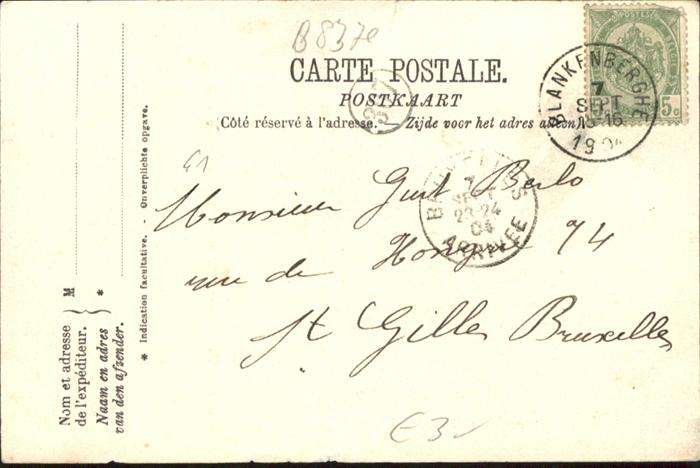 B837e
CARTE POSTALE.
POSTKAART
Côté réservé à l'adresse. Zijde voor het adres alleen.
BLANKENBERGHE
7
SEPT
15-16
1904
5c
41
BRUXELLES
7
SEPT
23-24
04
ARRIVEE
Monsieur Gust Berlo
rue de Hongrie 74
St Gilles Bruxelles
E3
Nom et adresse
de l'expéditeur.
Naam en adres
van den afzender.
M
*
* Indication facultative. - Onverplichte opgave.